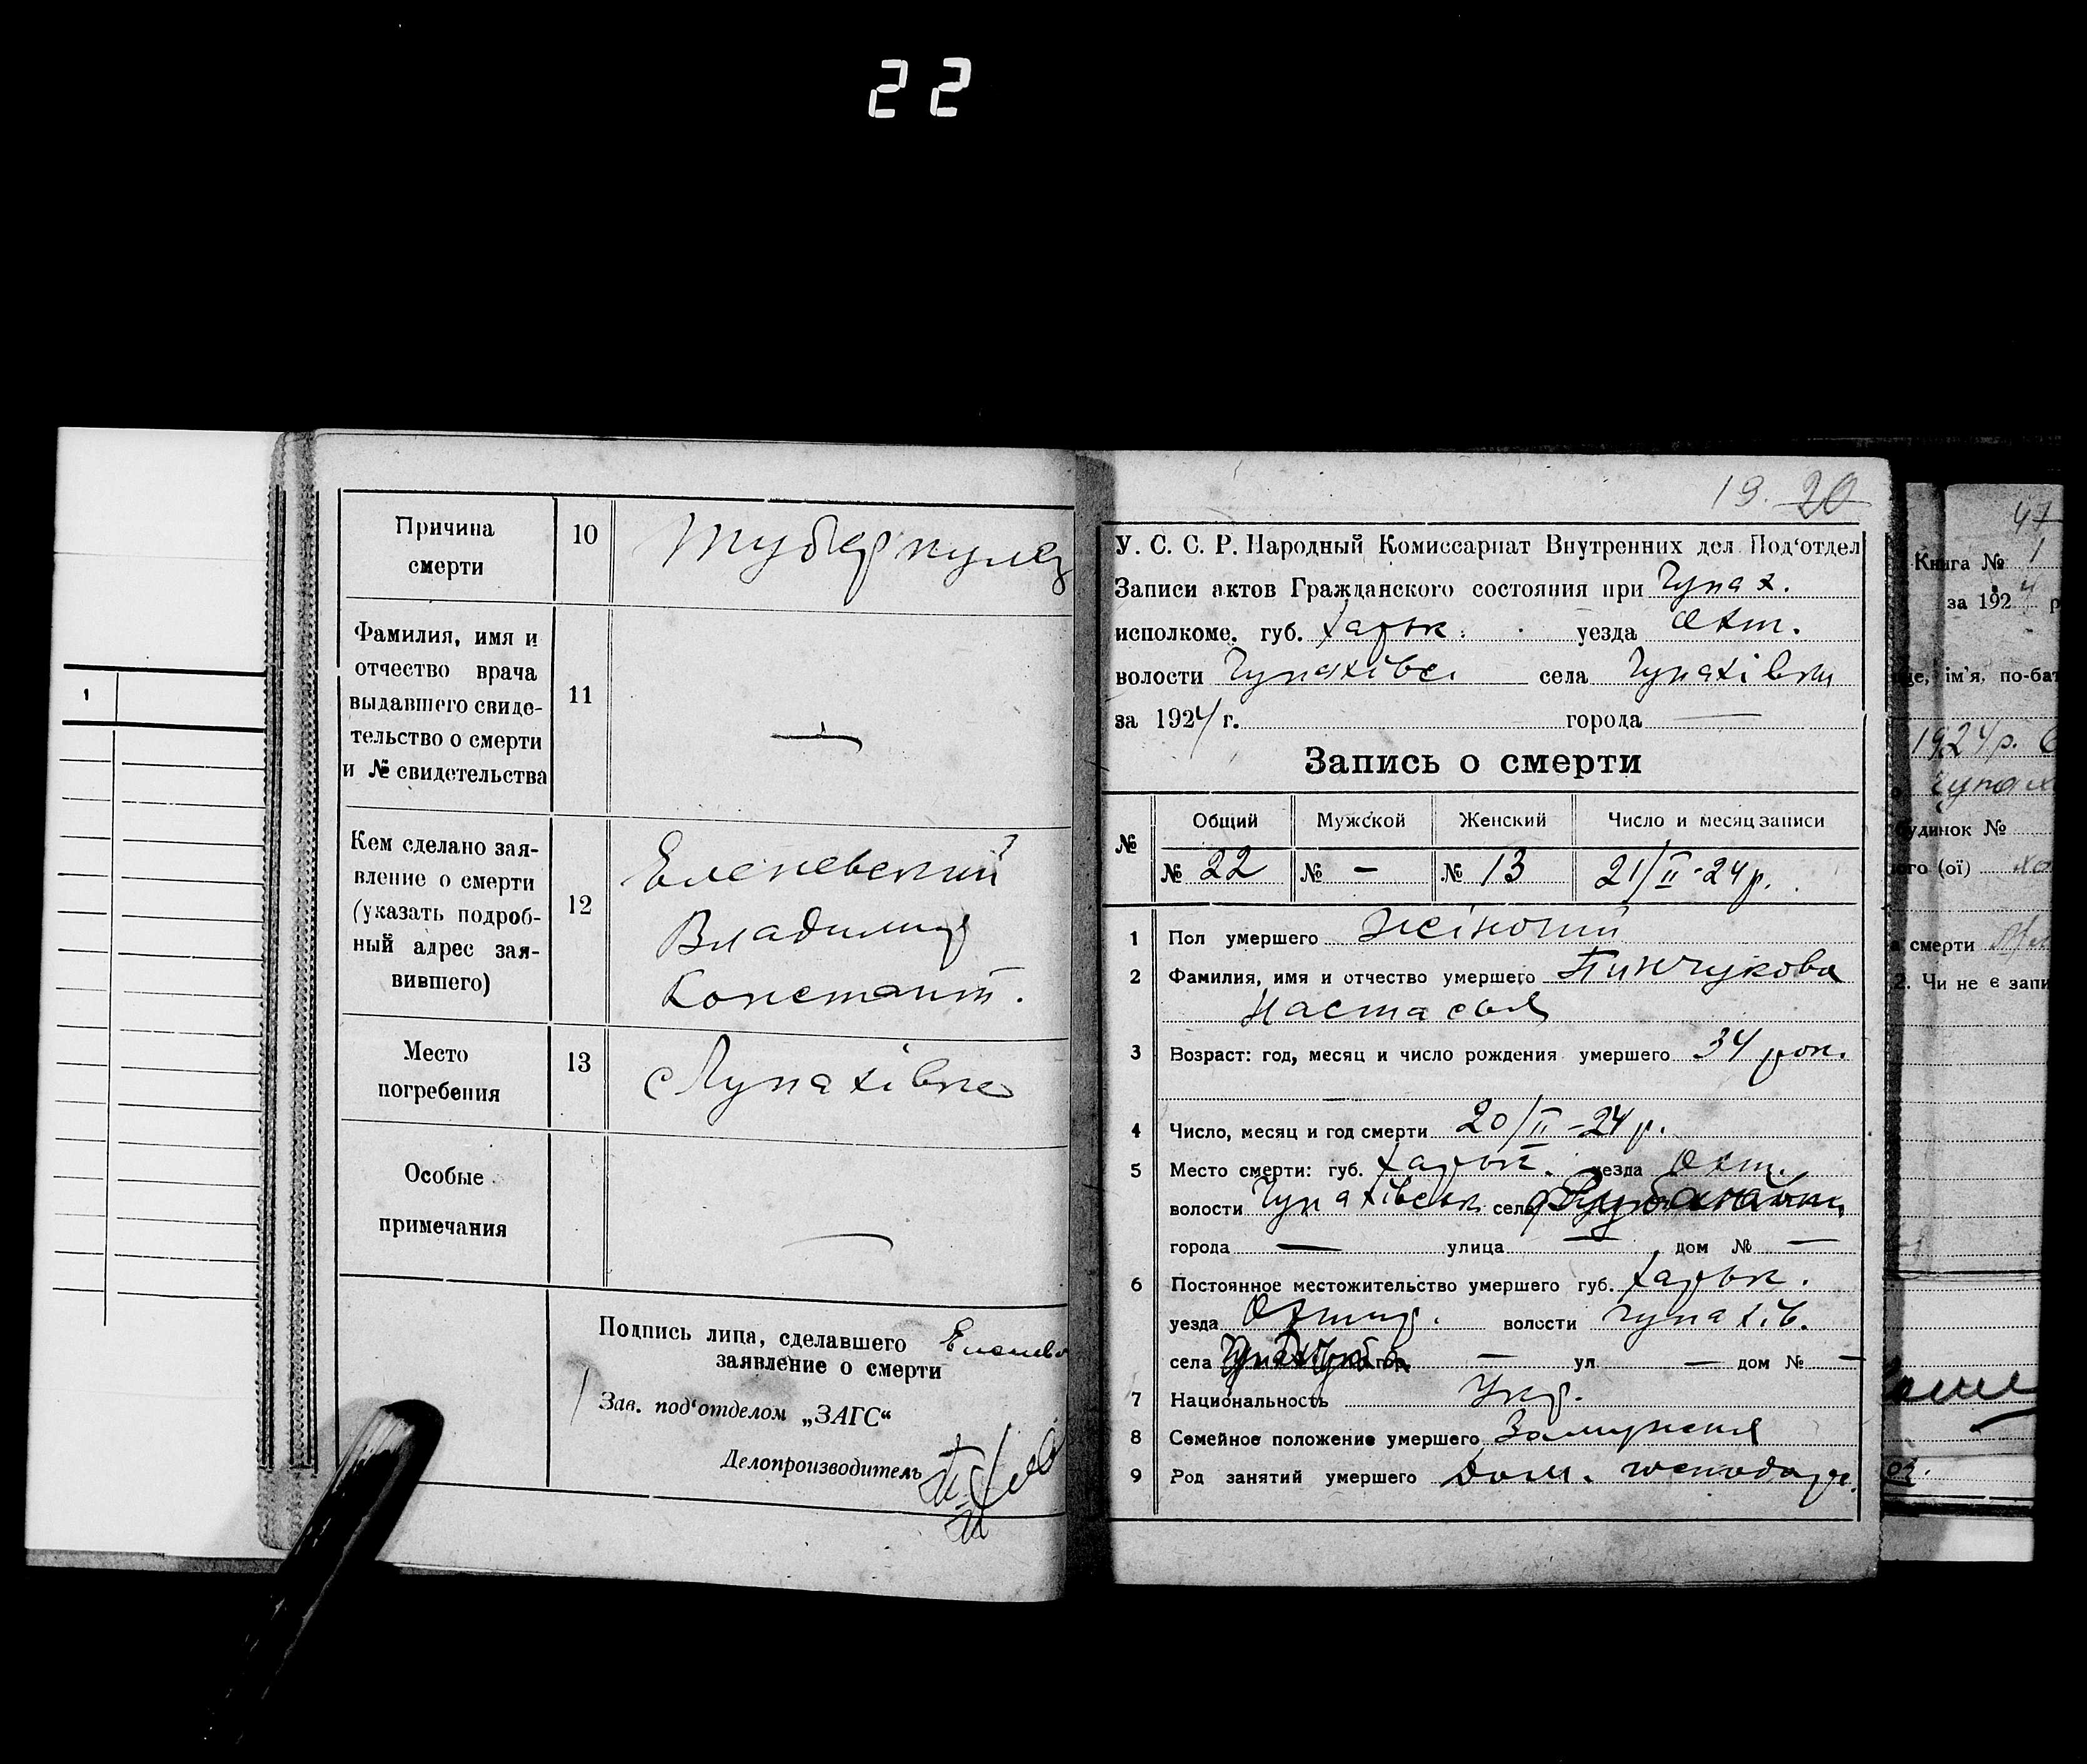 22
Причина
смерти
10
Туберкулез
Фамилия, имя и
отчество врача
выдавшего свиде-
тельство о смерти
и № свидетельства
11
—
Кем сделано зая-
вление о смерти
(указать подроб-
ный адрес зая-
вившего)
12
Еленевский
Владимир
Констант.
Место
погребения
13
Особые
примечания
—
Подпись лица, сделавшего
заявление о смерти
Зав. под‘отделом „ЗАГС“
Делопроизводитель
1
19. 20
У. С. С. Р. Народный Комиссариат Внутренних дел Под‘отдел
Записи актов Гражданского состояния при Чупах.
исполкоме, губ. Харьк. уезда Охт.
волости Чупахівсь села Чупахівки
за 1924 г. города —
Запись о смерти
№ Общий Мужской Женский Число и месяц записи
№ 22 № – № 13 21/II-24 р.
1 Пол умершего Жіночий
2 Фамилия, имя и отчество умершего Пинчукова
Настасья
3 Возраст: год, месяц и число рождения умершего 34 рок.
4 Число, месяц и год смерти 20/II-24 р.
5 Место смерти: губ. Харьк. уезда Охт.
волости Чупахівськ села
города — улица — дом № —
6 Постоянное местожительство умершего губ. Харьк.
уезда Охтир. волости Чупахів.
села гор. — ул — дом № —
7 Национальность Укр.
8 Семейное положение умершего Замужняя
9 Род занятий умершего Дом.
47
Книга № 1
за 1924 р
ім'я, по-бат
1924 р.
Чупах
будинок №
ого (ої)
смерти
2. Чи не є запи